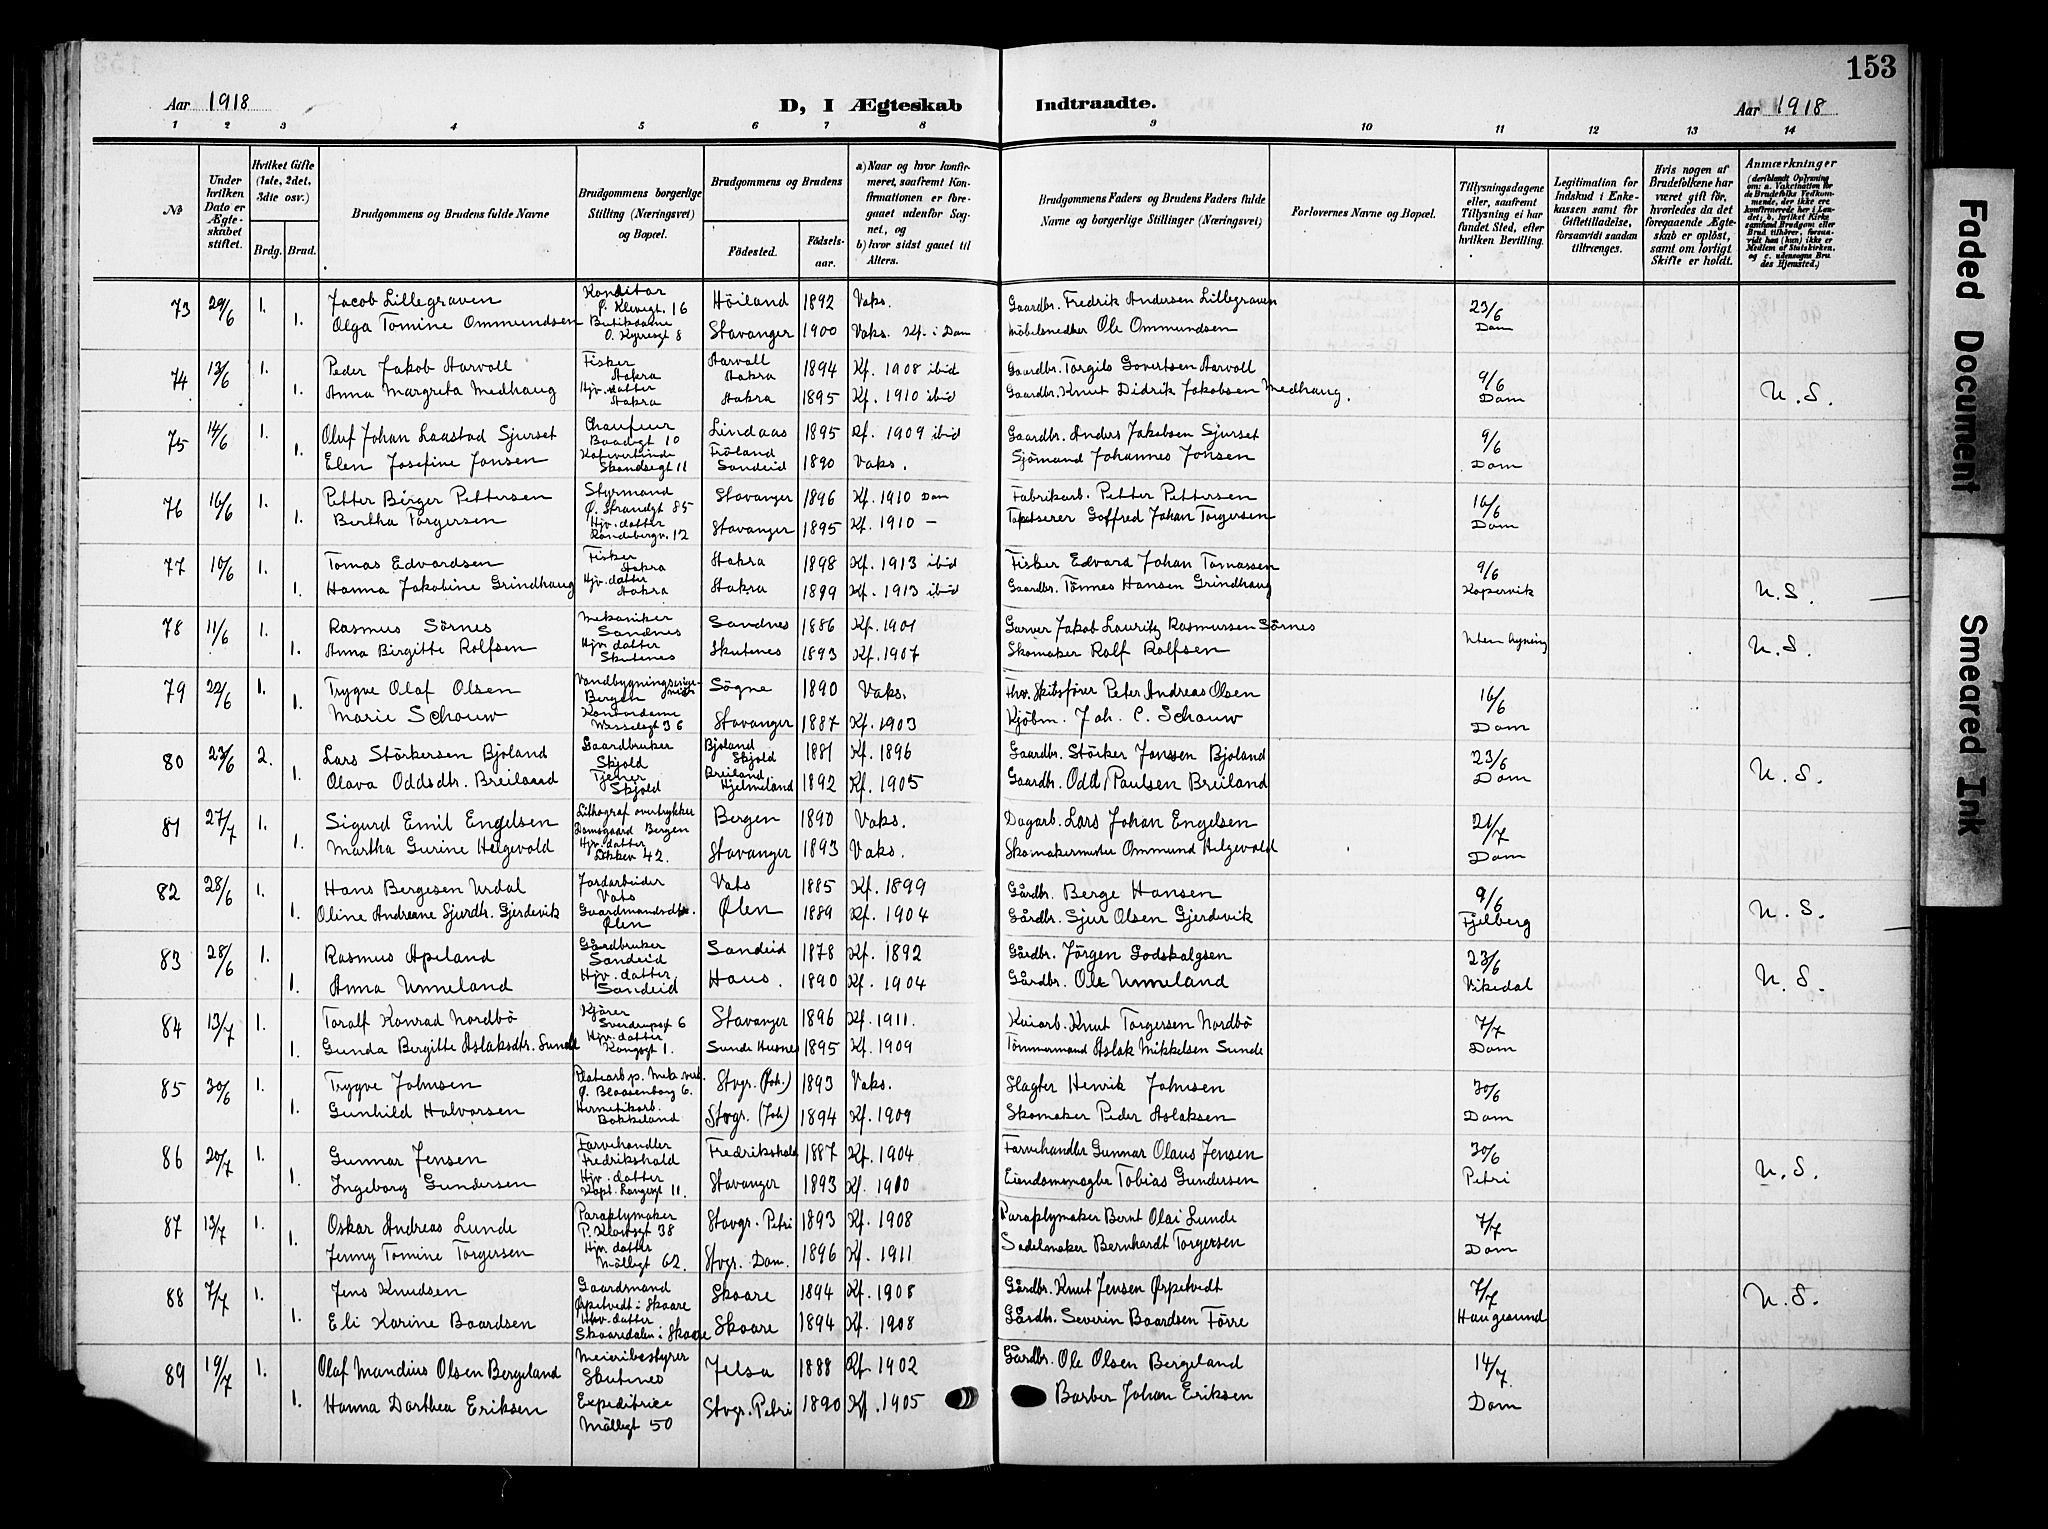 153
Aar 1918
D, I Ægteskab Indtraadte.
Aar 1918
1 2 3 4 5 6 7 8 9 10 11 12 13 14
No
Under hvilken Dato er Ægteskabet stiftet.
Hvilket Gifte (1ste, 2det, 3die osv.)
Brdg. Brud.
Brudgommens og Brudens fulde Navne
Brudgommens borgerlige Stilling (Næringsvei) og Bopæl.
Brudgommens og Brudens
Fødested. Fødsels-aar.
a) Naar og hvor konfirmeret, saafremt Konfirmationen er foregaaet udenfor Sognet, og
b) hvor sidst gaaet til Alters.
Brudgommens Faders og Brudens Faders fulde Navne og borgerlige Stillinger (Næringsvei)
Forlovernes Navne og Bopæl.
Tillysningsdagene eller, saafremt Tillysning ei har fundet Sted, efter hvilken Bevilling.
Legitimation for Indskud i Enkekassen samt for Giftetilladelse, forsaavidt saadan tiltrænges.
Hvis nogen af Brudefolkene har været gift før, hvorledes da det foregaaende Ægteskab er opløst, samt om lovligt Skifte er holdt.
Anmærkninger
(deriblandt Oplysning om: a. Vakcination for de Brudefolks Vedkommende, der ikke ere konfirmerede her i Landet; b. hvilket Kirkesamfund Brudgom eller Brud tilhører, forsaavidt han (hun) ikke er Medlem af Statskirken, og c. udensogns Brudes Hjemsted.)
73 29/6 1. Jacob Lillegraven Konditor Ø. Klevegt. 16 Höiland 1892 Vaks. Gaardbr. Fredrik Andersen Lillegraven 23/6
1. Olga Tomine Ommundsen Butikdame O. Kyrresgt 8 Stavanger 1900 Vaks. Kf. i Dom Möbelsnedker Ole Ommundsen Dom
74 13/6 1. Peder Jakob Aarvoll Fisker Aakra Aarvoll Aakra 1894 Kf. 1908 ibid Gaardbr. Torgils Govertsen Aarvoll 9/6
1. Anna Margreta Medhaug Hjv. datter Aakra Aakra 1895 Kf. 1910 ibid Gaardbr. Knut Didrik Jakobsen Medhaug. Dom U. S.
75 14/6 1. Oluf Johan Laastad Sjurset Chauffeur Baadegt 10 Lindaas 1895 Kf. 1909 ibid Gaardbr. Anders Jakobsen Sjurset 9/6
1. Elen Josefine Jonsen Kafevertinde Skandsegt 11 Fröland Sandeid 1890 Vaks. Sjömand Johannes Jonsen Dom
76 16/6 1. Petter Birger Pettersen Styrmand Ø. Strandgt 85 Stavanger 1896 Kf. 1910 Dom Fabrikarb. Petter Pettersen 16/6
1. Bertha Torgersen Hjv. datter Randebergv. 12 Stavanger 1895 Kf. 1910 — Tapetserer Goffred Johan Torgersen Dom
77 16/6 1. Tomas Edvardsen Fisker Aakra Aakra 1898 Kf. 1913 ibid Fisker Edvard Johan Tomassen 9/6
1. Hanna Jakobine Grindhaug Hjv. datter Aakra Aakra 1899 Kf. 1913 ibid Gaardbr. Tönnes Hansen Grindhaug Kopervik U. S.
78 11/6 1. Rasmus Sörnes Mekaniker Sandnes Sandnes 1886 Kf. 1901 Garver Jakob Lauritz Rasmussen Sörnes Uten lysning
1. Anna Birgitte Rolfsen Hjv. datter Skutenes Skutenes 1893 Kf. 1907 Skomaker Rolf Rolfsen U. S.
79 22/6 1. Trygve Olaf Olsen Vandbygningsingeniör Bergen Sögne 1890 Vaks. Fhv. Skibsförer Peter Andreas Olsen 16/6
1. Marie Schouw Kontordame Wesselsgt 36 Stavanger 1887 Kf. 1903 Kjöbm. Joh. C. Schouw Dom
80 23/6 2. Lars Störkersen Bjoland Gaardbruker Skjold Bjoland Skjold 1881 Kf. 1896 Gaardbr. Störker Jonssen Bjoland 23/6
1. Olava Oddsdtr. Breiland Tjener Skjold Breiland Hjelmeland 1892 Kf. 1905 Gaardbr. Odd Paulsen Breiland Dom U. S.
81 27/7 1. Sigurd Emil Engelsen Lithograf overtrykker Damsgaard Bergen Bergen 1890 Vaks. Dagarb. Lars Johan Engelsen 21/7
1. Martha Gurine Helgevold Hjv. datter 42. Stavanger 1893 Vaks. Skomakermester Ommund Helgevold Dom
82 28/6 1. Hans Bergesen Urdal Jordarbeider Vats Vats 1885 Kf. 1899 Gårdbr. Berge Hansen 9/6
1. Oline Andreane Sjurdtr. Gjerdevik Gaardmandsdtr. Ølen Ølen 1889 Kf. 1904 Gårdbr. Sjur Olsen Gjerdevik Fjelberg U. S.
83 28/6 1. Rasmus Apeland Gårdbruker Sandeid Sandeid 1878 Kf. 1892 Gårdbr. Jörgen Godskalgsen 23/6
1. Anna Unneland Hjv. datter Sandeid Haus. 1890 Kf. 1904 Gårdbr. Ole Unneland Vikedal U. S.
84 13/7 1. Toralf Konrad Nordbö Kjörer Sverdrupsgt 6 Stavanger 1896 Kf. 1911. Kaiarb. Knut Torgersen Nordbö 7/7
1. Gunda Bergitte Aslaksdtr. Sunde Hjv. datter Kongsgt 1. Sunde Husnes 1895 Kf. 1909 Tömmermand Aslak Mikkelsen Sunde Dom
85 30/6 1. Trygve Johnsen Platearb. p. Mek. verk. Ø. Blaasenborg 6. Stvgr. (Joh.) 1893 Vaks. Slagter Henrik Johnsen 30/6
1. Gunhild Halvorsen Hermetikarb. Bakkeland Stvgr. (Joh) 1894 Kf. 1909 Skomaker Peder Aslaksen Dom
86 20/7 1. Gunnar Jensen Farvehandler Fredrikshald Fredrikshald 1887 Kf. 1904 Farvehandler Gunnar Olaus Jensen 30/6
1. Ingeborg Gundersen Hjv. datter Kapt. Langesgt 11. Stavanger 1893 Kf. 1910 Eiendomsmægler Tobias Gundersen Petri U. S.
87 13/7 1. Oskar Andreas Lunde Paraplymaker P. Klowsgt 38 Stavgr. Petri 1893 Kf. 1908 Paraplymaker Bernt Olai Lunde 7/7
1. Jenny Tomine Torgersen Hjv. datter Möllegt 62. Stvgr. Dom. 1896 Kf. 1911 Sadelmaker Bernhardt Torgersen Dom
88 7/7 1. Jens Knudsen Gaardsmand Ørpetvedt i Skaare Skaare 1894 Kf. 1908 Gårdbr. Knut Jensen Ørpetvedt 7/7
1. Eli Karine Baardsen Hjv. datter Skaaredalen i Skaare Skaare 1894 Kf. 1908 Gårdbr. Severin Baardsen Förre Haugesund U. S.
89 19/7 1. Olaf Mandius Olsen Bergeland Meieribestyrer Skutnes Jelsa 1888 Kf. 1902 Gårdbr. Ole Olsen Bergeland 14/7.
1. Hanna Dorthea Eriksen Expeditrice Möllegt 50 Stvgr. Petri 1890 Kf. 1905 Barber Johan Eriksen Dom
Faded Document
Smeared Ink